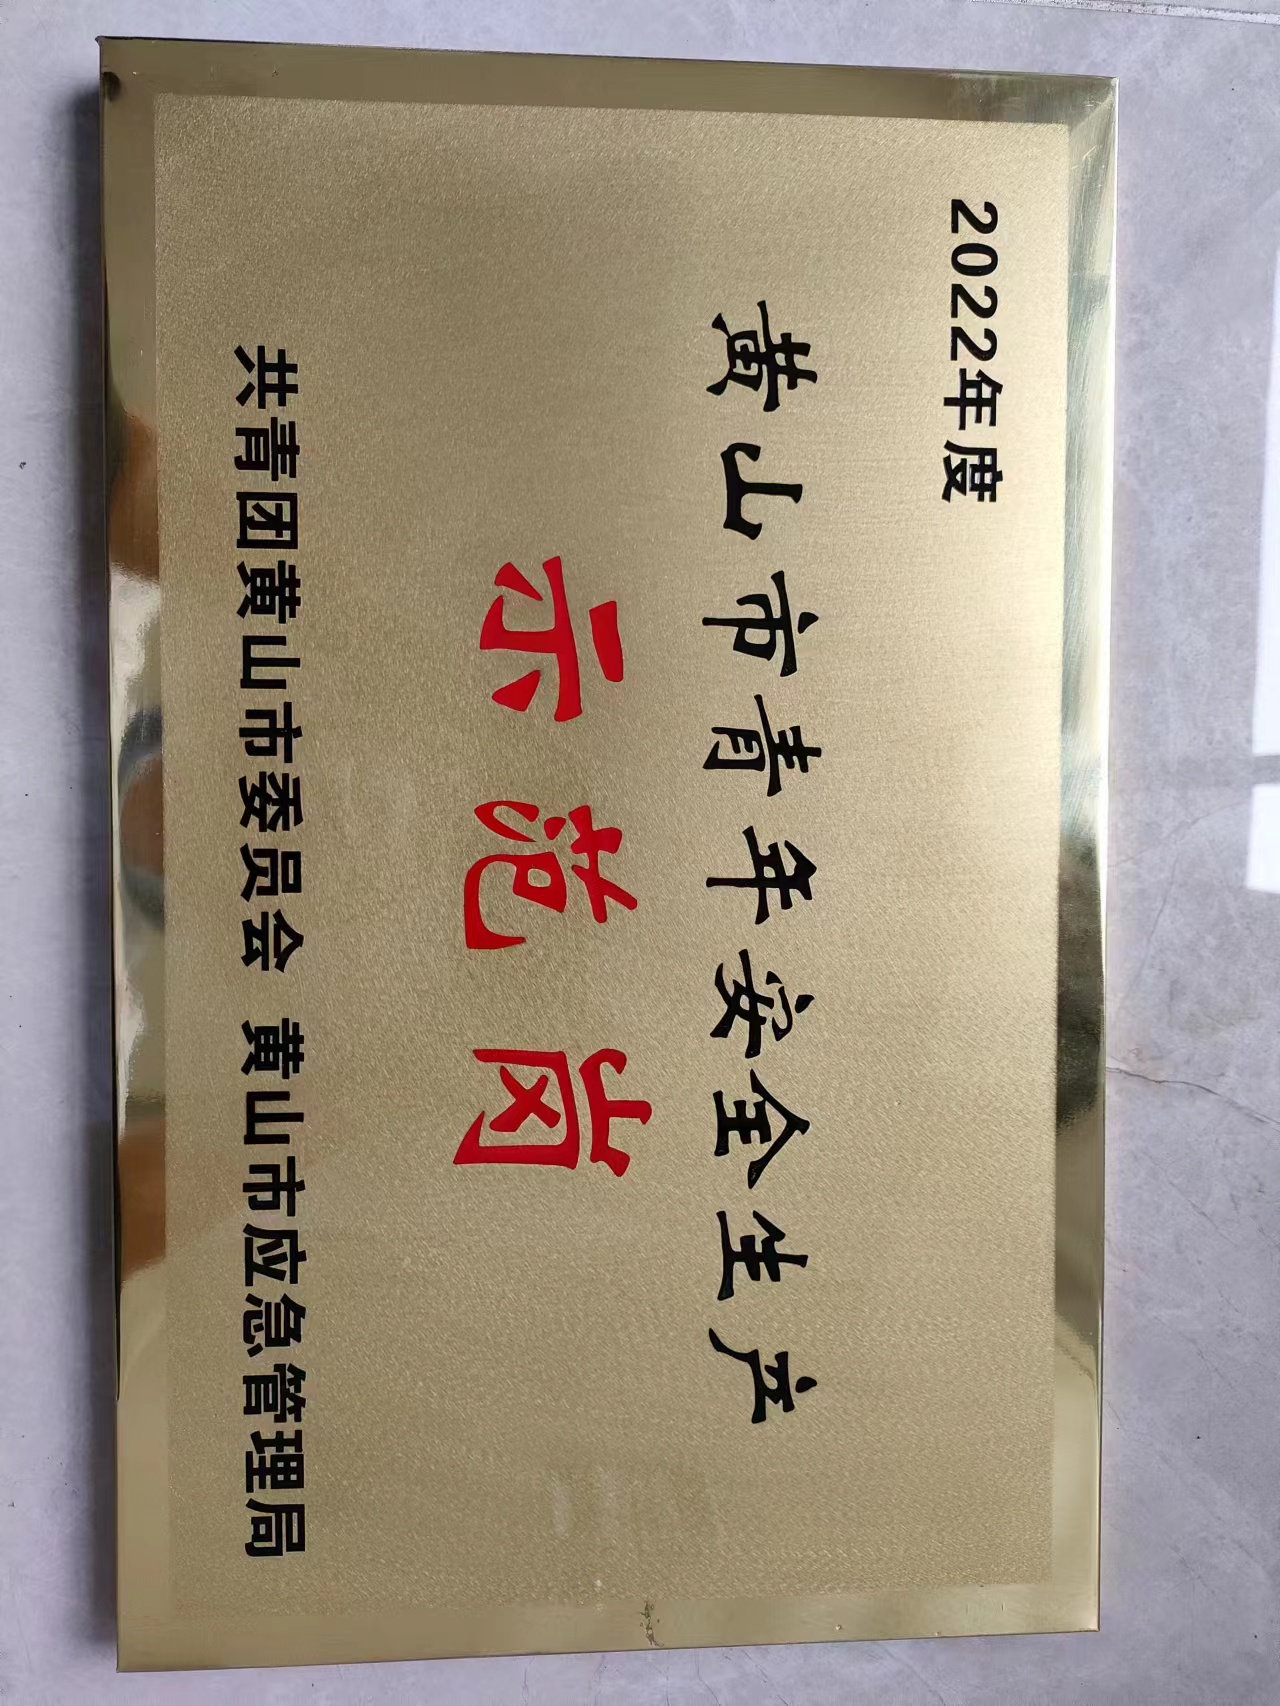 2022年度
黄山市青年安全生产
示范岗
共青团黄山市委员会 黄山市应急管理局